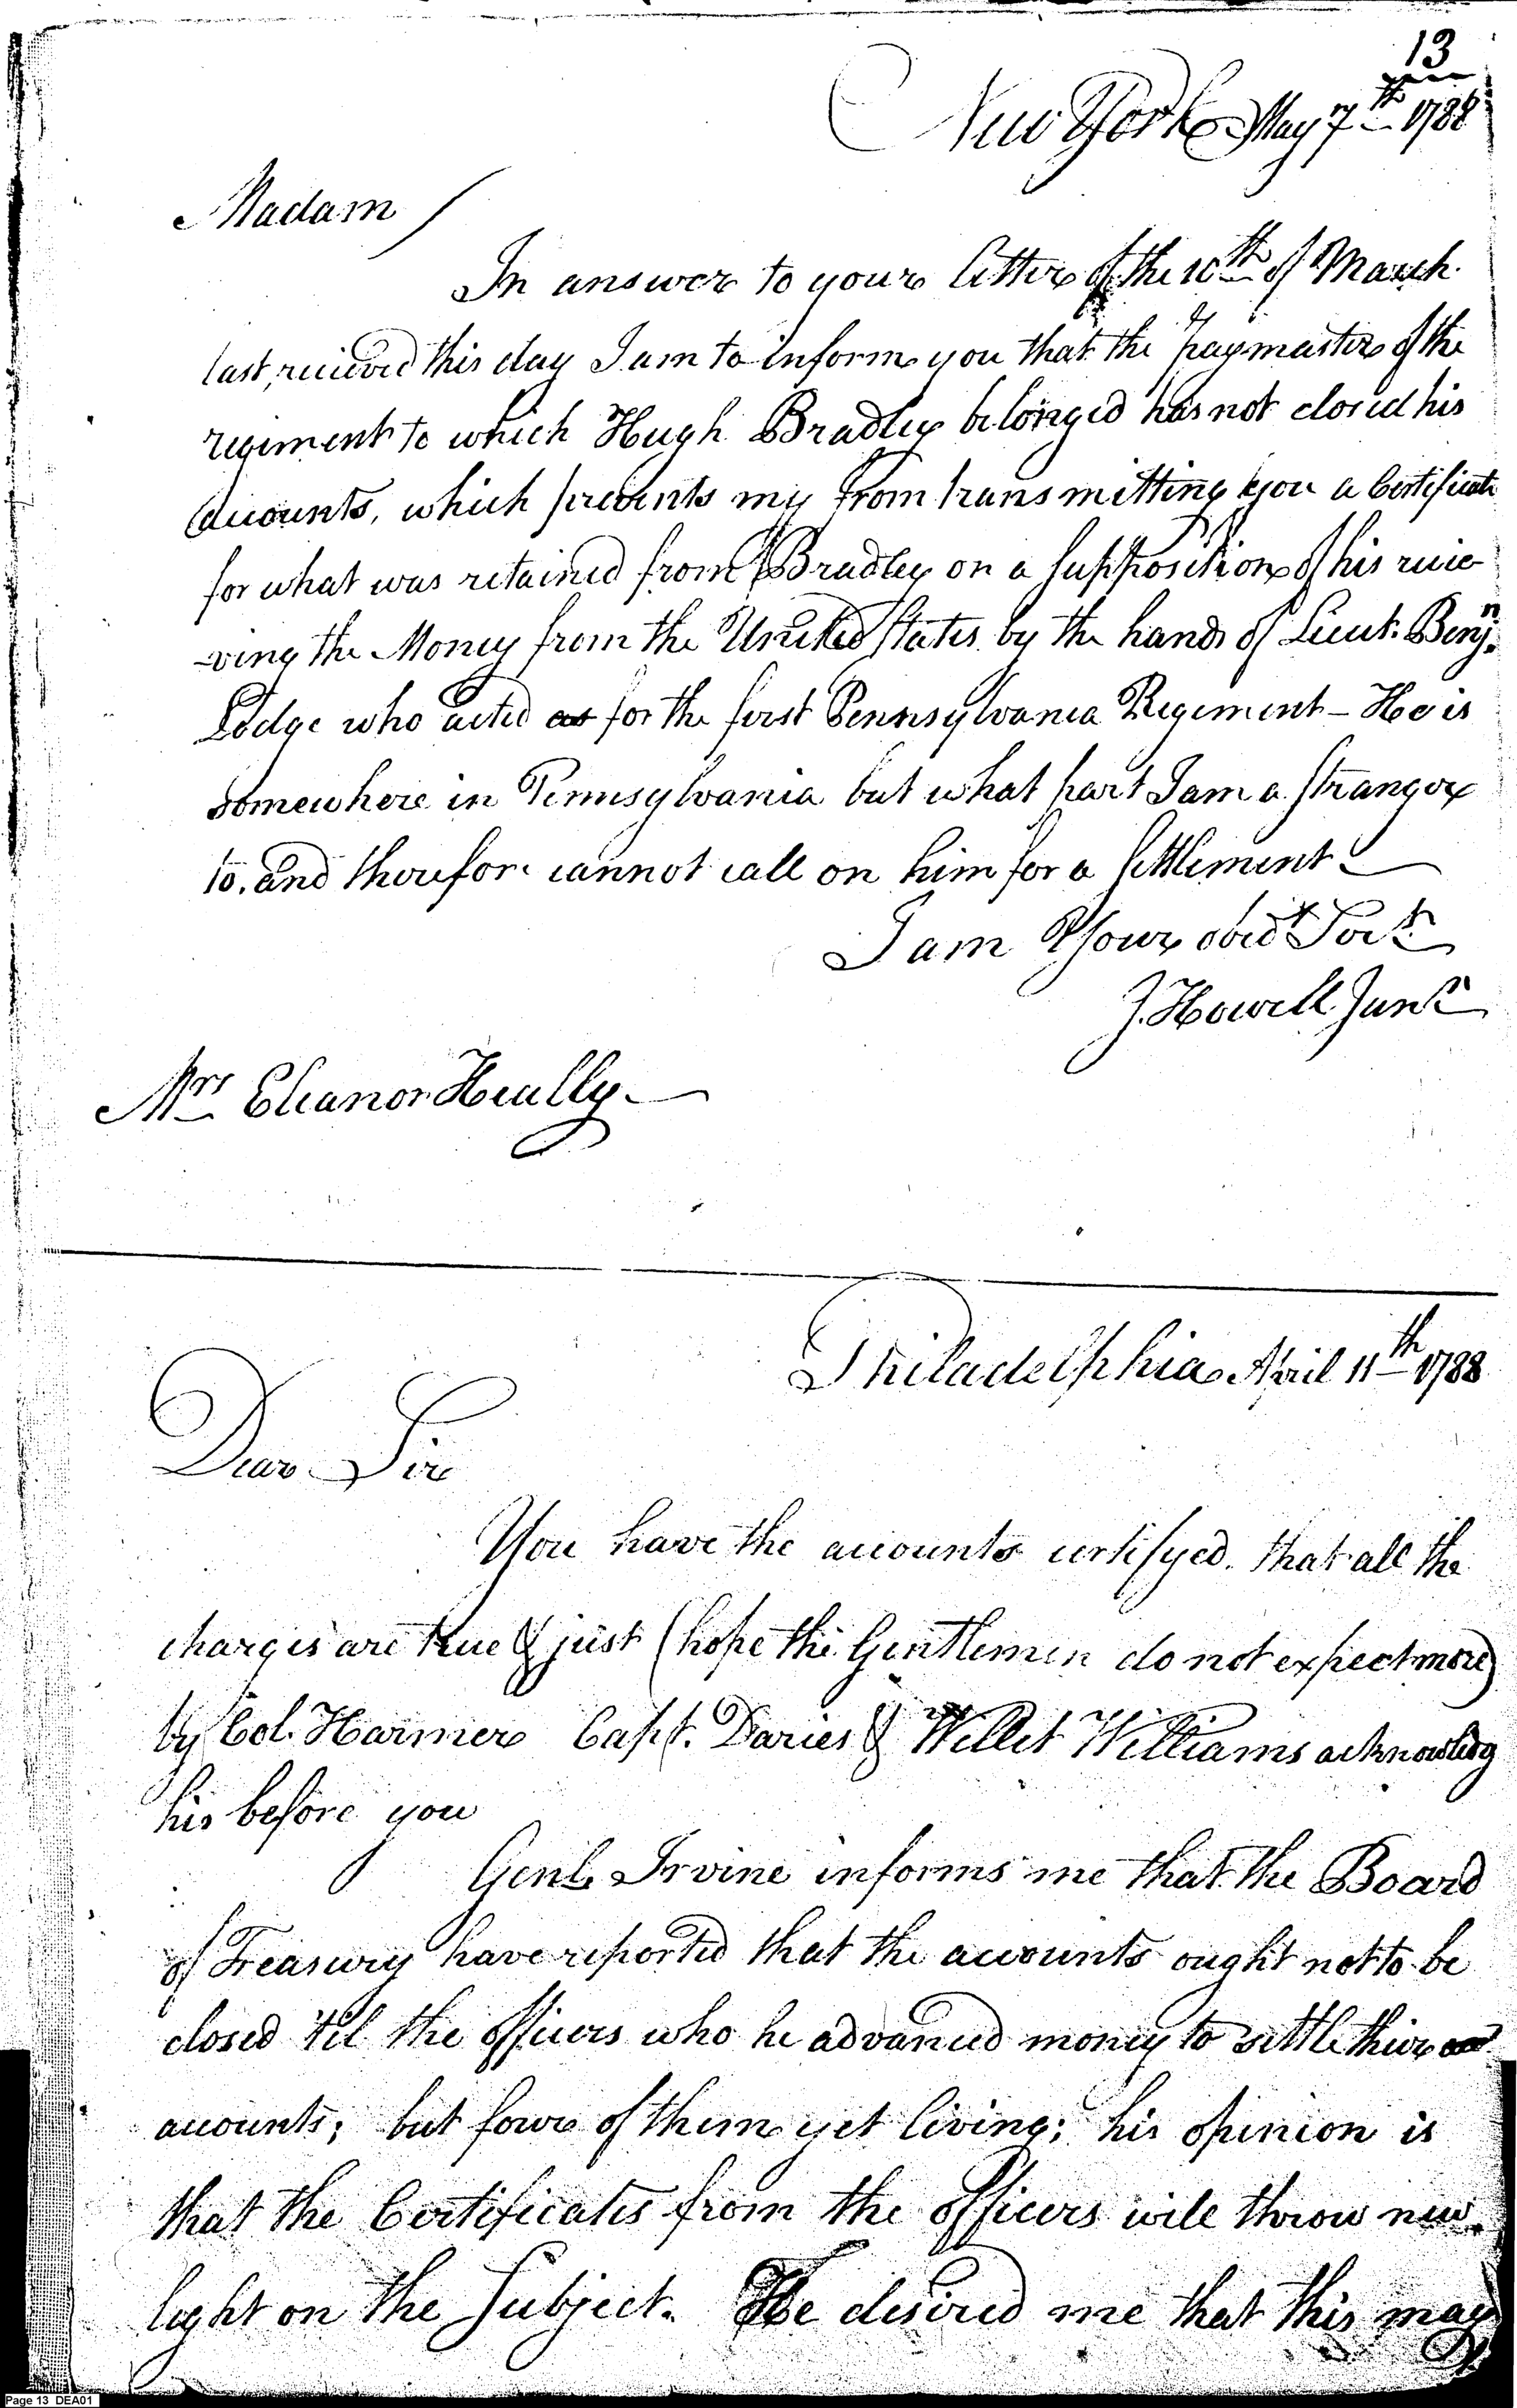 13
New York May 7th 1788
Madam /
In answer to your letter of the 10th of March
last, recieved this day I am to inform you that the paymaster of the
regiment to which Hugh Bradley belonged has not closed his
accounts, which prevents my from transmitting you a Certificate
for what was retained from Bradley on a supposition of his recie
-ving the Money from the United States by the hands of Lieut. Benjn.
Lodge who acted as for the first Pennsylvania Regiment - He is
somewhere in Pennsylvania but what part I am a stranger
to, and therefore cannot call on him for a settlement
I am Your obedt Servt.
J. Howell Junr
Mrs Eleanor Heally
Philadelphia April 11th 1788
Dear Sir
You have the accounts certifyed, that all the
charges are true & just (hope the Gentlemen do not expect more)
by Col. Harmer Capt. Davies & Willet Williams acknowledg
his before you
Genl. Irvine informs me that the Board
of Treasury have reported that the accounts ought not to be
closed 'til the officers who he advanced money to settle their
accounts; but four of them yet living; his opinion is
that the Certificates from the officers will throw new
light on the Subject. He desired me that this may
Page 13 DEA01